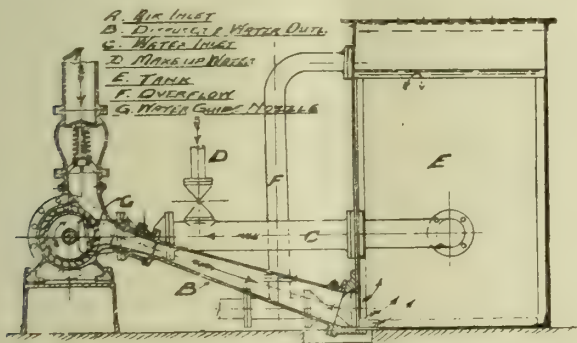 A. AIR INLET
B. DIFFUSER & WATER OUTL.
C. WATER INLET
D. MAKE UP WATER
E. TANK
F. OVERFLOW
G. WATER GUIDE NOZZLE
A
D
F
E
G
C
B